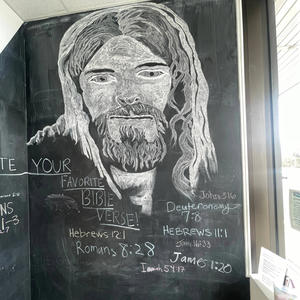 TE YOUR
FAVORITE
BIBLE
VERSE!
John 3:16
Deuteronomy
7:8
Hebrews 12:1
HEBREWS 11:1
Romans 8:28
John 16:33
James 1:20
Isaiah 54:17
NS